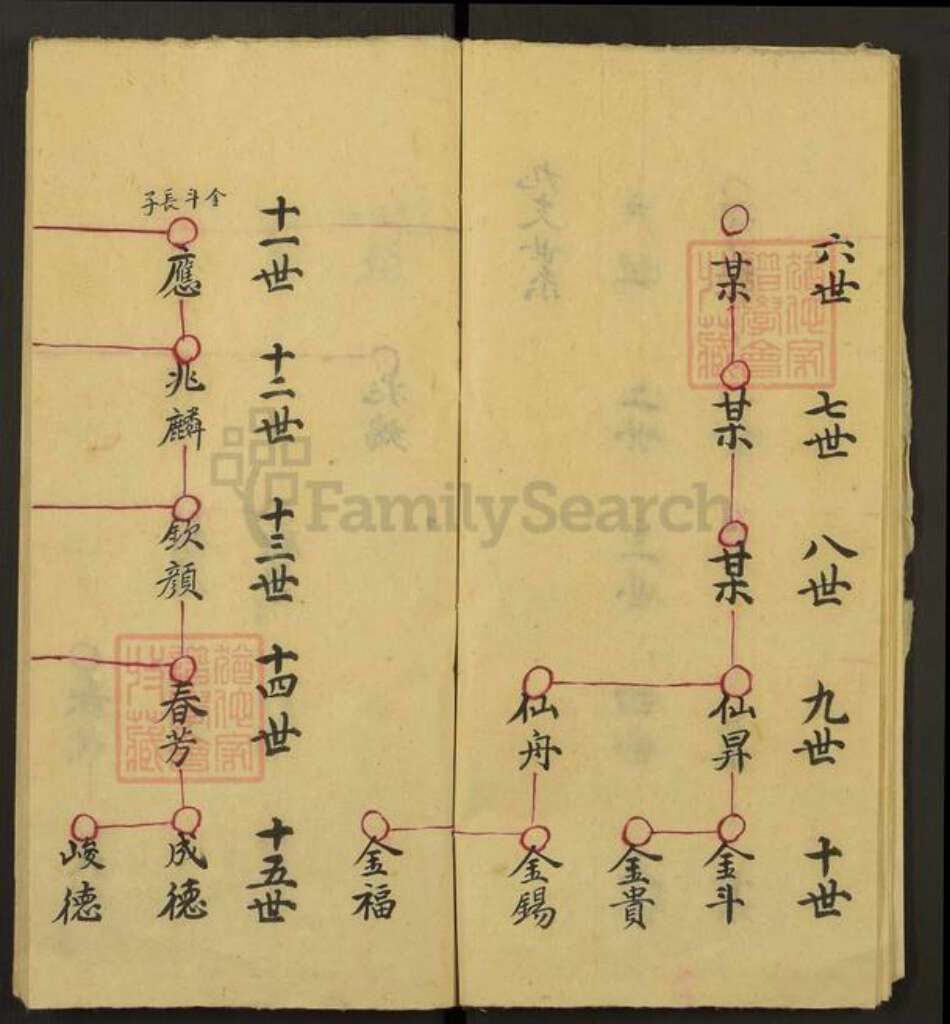 六世
某
七世
某
八世
某
九世
仙昇
仙舟
十世
金斗
金貴
金錫
金福
十一世
金斗長子
應
十二世
兆麟
十三世
欽顏
十四世
春芳
十五世
成德
峻德
FamilySearch